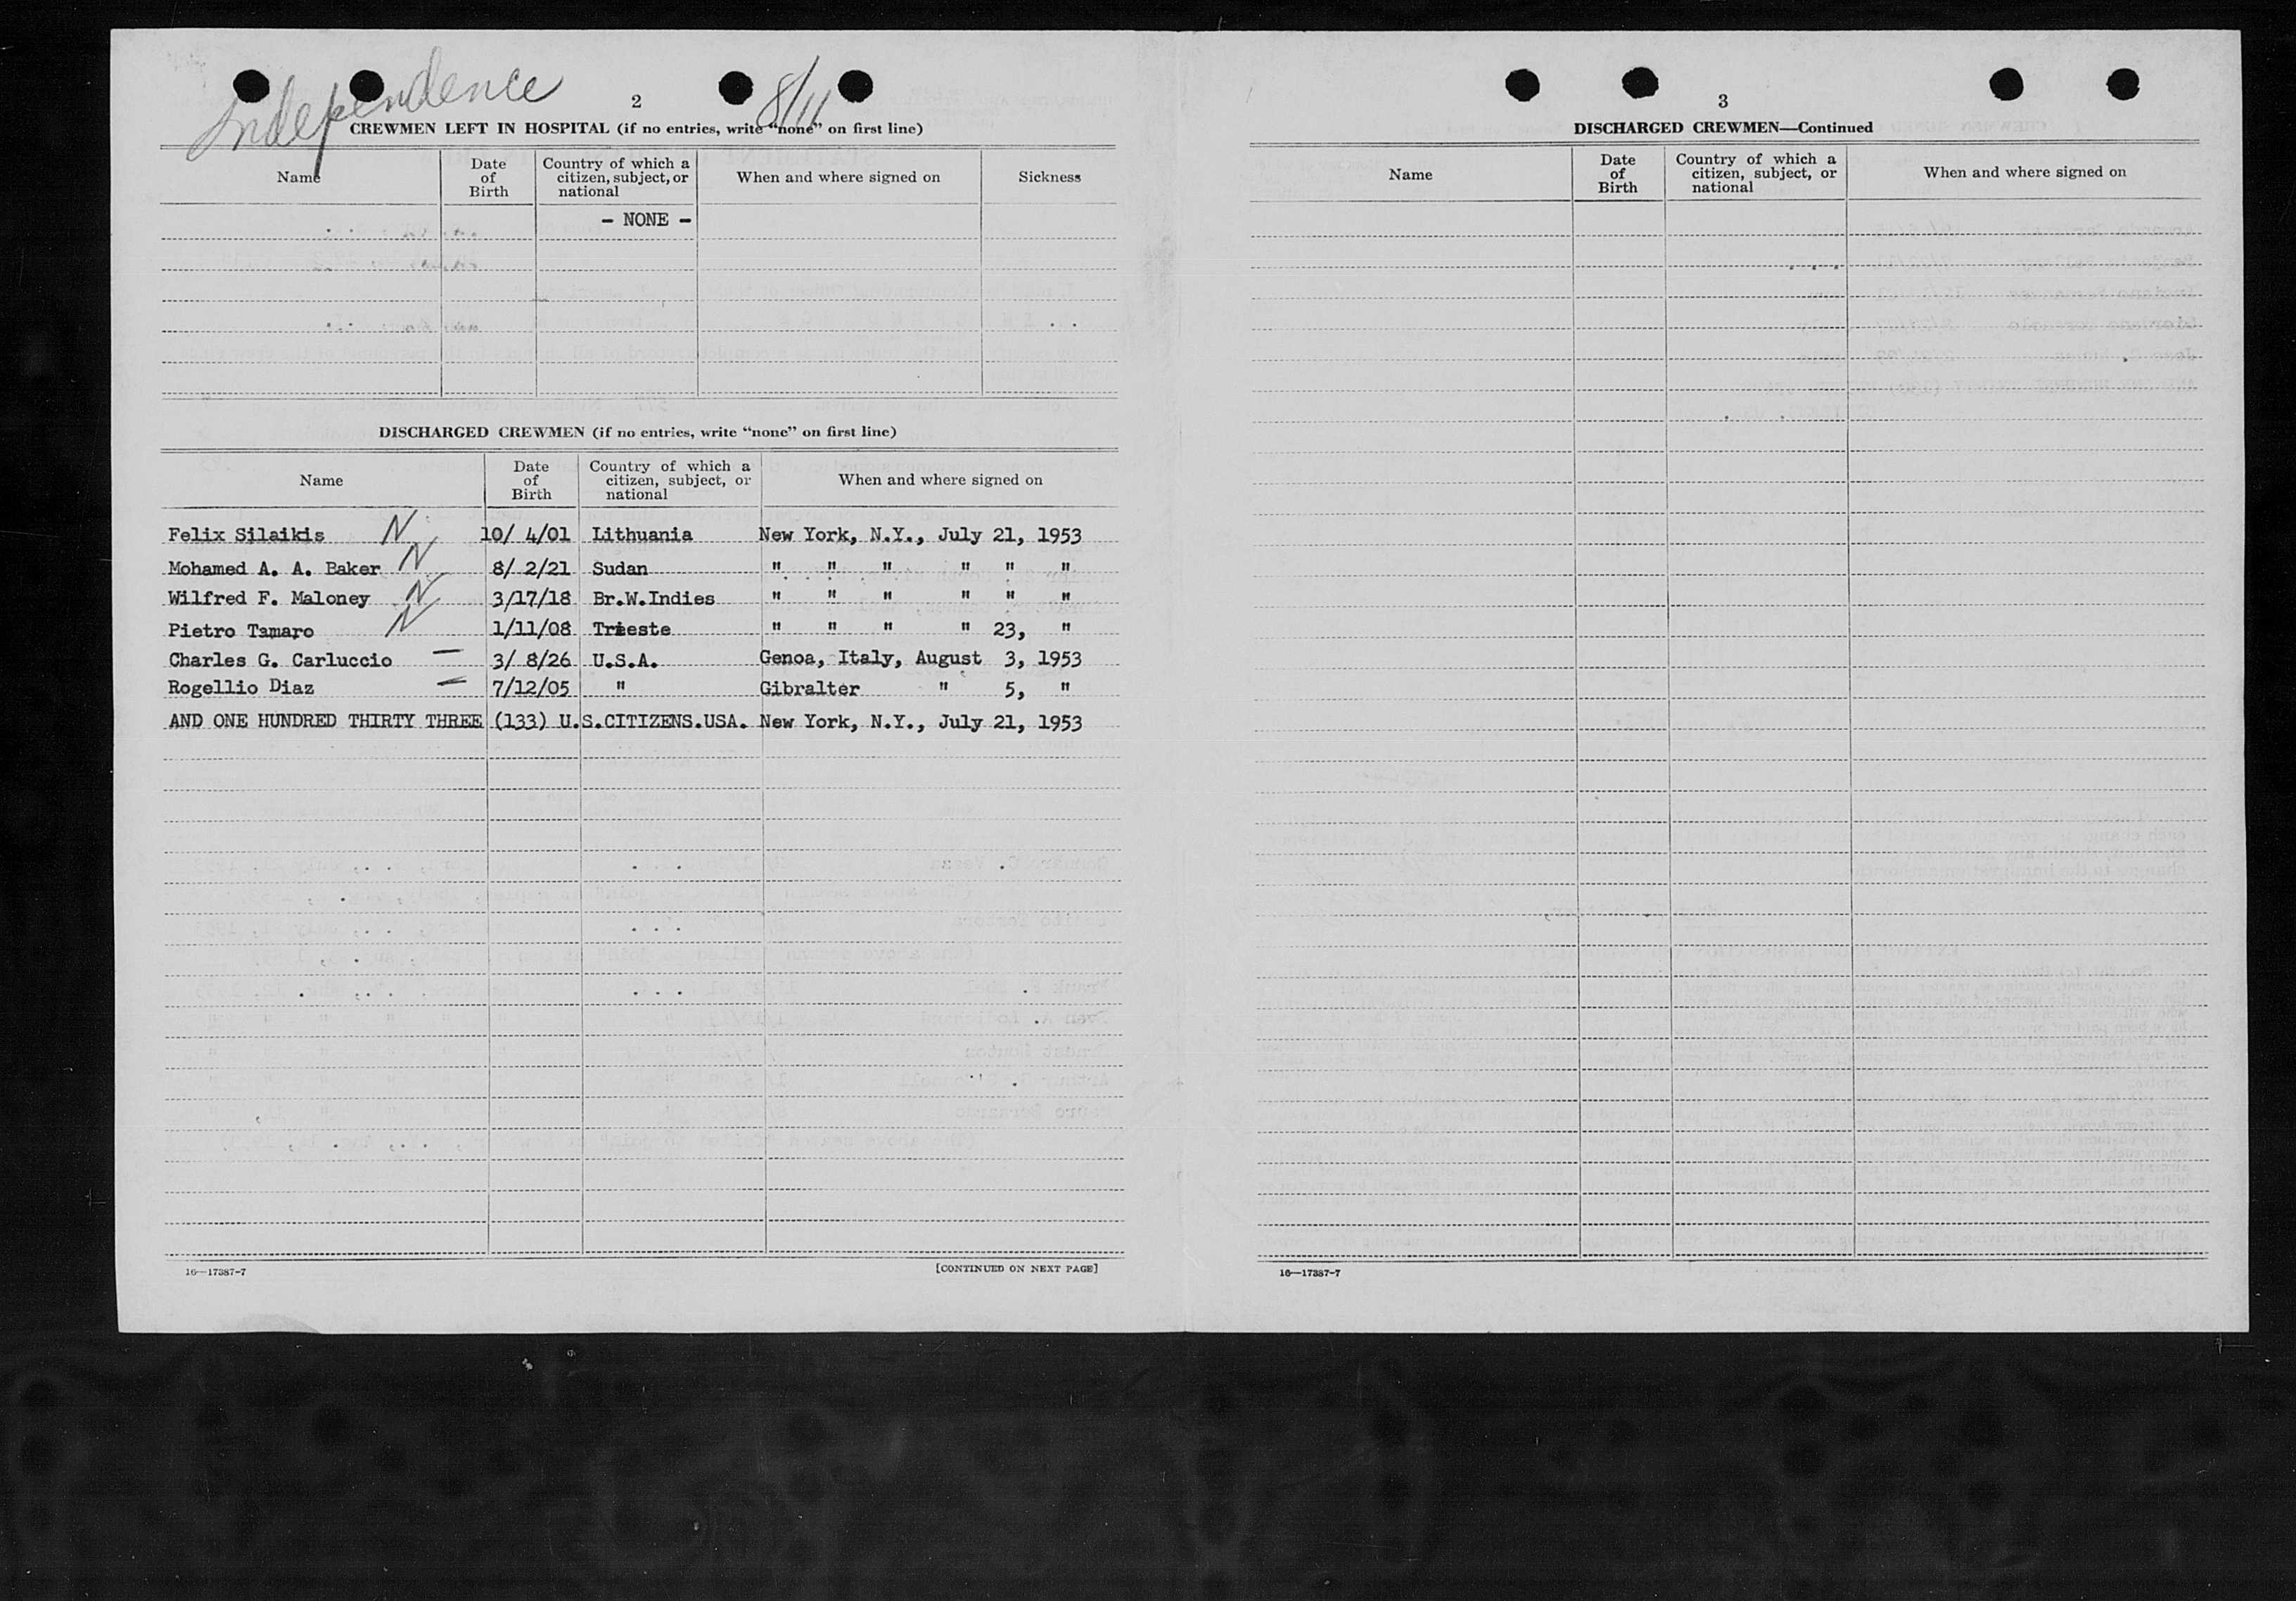 Independence 8/11
2
CREWMEN LEFT IN HOSPITAL (if no entries, write “none” on first line)
Name Date of Birth Country of which a citizen, subject, or national When and where signed on Sickness
- NONE -
DISCHARGED CREWMEN (if no entries, write “none” on first line)
Name Date of Birth Country of which a citizen, subject, or national When and where signed on
Felix Silaikis N 10/ 4/01 Lithuania New York, N.Y., July 21, 1953
Mohamed A. A. Baker N 8/ 2/21 Sudan " " " " " "
Wilfred F. Maloney N 3/17/18 Br.W.Indies " " " " " "
Pietro Tamaro N 1/11/08 Trieste " " " " 23, "
Charles G. Carluccio — 3/ 8/26 U.S.A. Genoa, Italy, August 3, 1953
Rogellio Diaz — 7/12/05 " Gibralter " 5, "
AND ONE HUNDRED THIRTY THREE (133) U.S.CITIZENS.USA. New York, N.Y., July 21, 1953
16—17387-7 [CONTINUED ON NEXT PAGE]
3
DISCHARGED CREWMEN—Continued
Name Date of Birth Country of which a citizen, subject, or national When and where signed on
16—17387-7